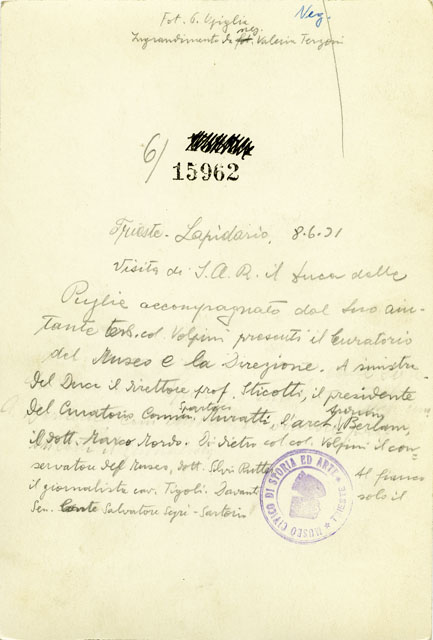 Neg.
Fot. G. Opiglia
neg.
Ingrandimento da fot. Valeria Terzoni
6/
15962
Trieste - Lapidario, 8.6.31
Visita di S.A.R. il Duca delle
Puglie accompagnato dal suo aiu-
tante col. Volpini presenti il Curatorio
del Museo e la Direzione. A sinistra
del Duca il direttore prof. Sticotti, il presidente
Spartaco
del Curatorio Comm. Muratti, l'arch. Berlam,
il dott. Marco Mordo. Di dietro col col. Volpini il con-
servatore del Museo, dott. Silvio Rutteri
Al fianco
il giornalista cav. Tigoli. Davanti
solo il
Sen. Conte Salvatore Segrè-Sartorio
MUSEO CIVICO DI STORIA ED ARTE
TRIESTE